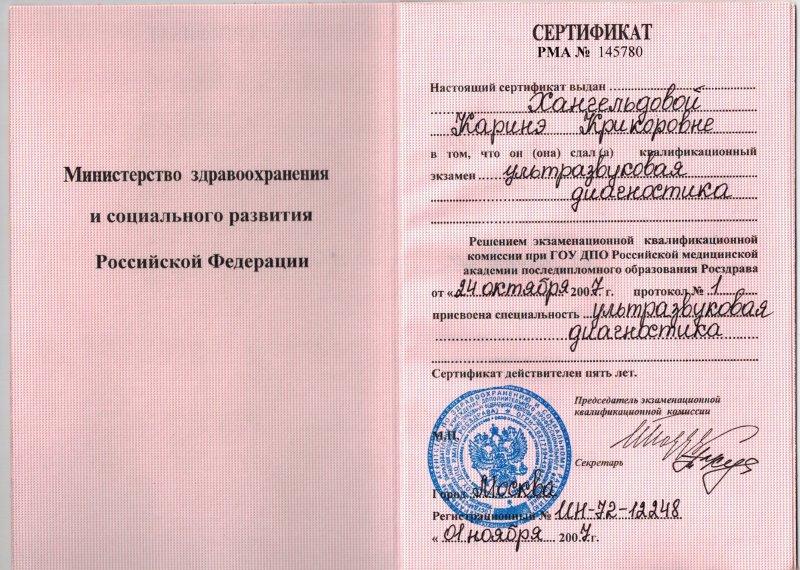 Министерство здравоохранения
и социального развития
Российской Федерации
СЕРТИФИКАТ
РМА № 145780
Настоящий сертификат выдан
Хангельдовой
Каринэ Крикоровне
в том, что он (она) сдал (а) квалификационный
экзамен ультразвуковая
диагностика
Решением экзаменационной квалификационной
комиссии при ГОУ ДПО Российской медицинской
академии последипломного образования Росздрава
от «24 октября 2007 г. протокол № 1
присвоена специальность ультразвуковая
диагностика
Сертификат действителен пять лет.
Председатель экзаменационной
квалификационной комиссии
М.П.
Секретарь
Город Москва
Регистрационный № ИН-72-12248
« 01 ноября 2007 г.